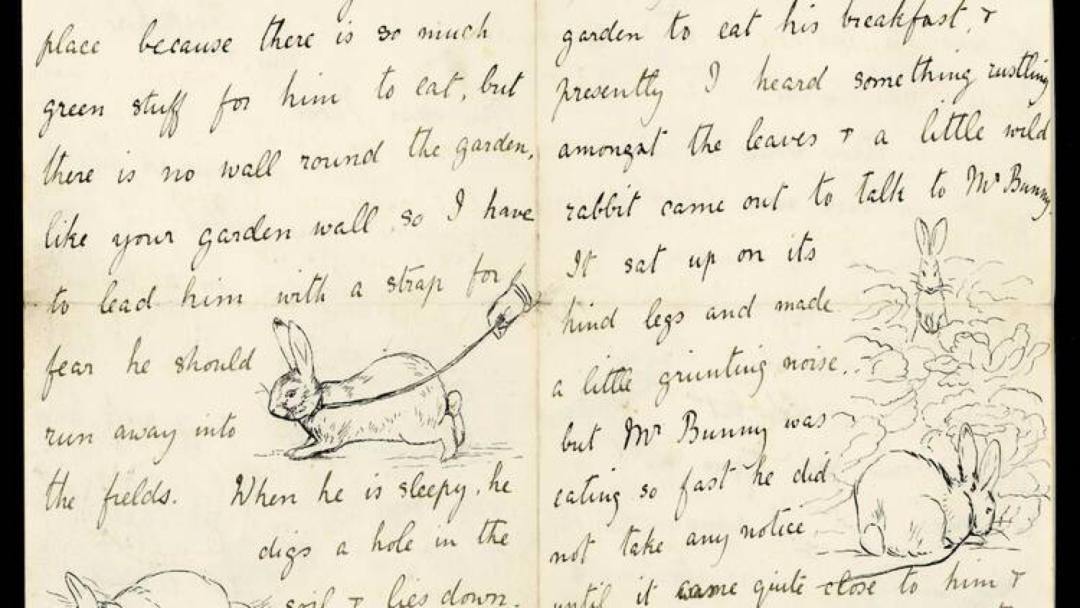 place because there is so much
green stuff for him to eat, but
there is no wall round the garden,
like your garden wall, so I have
to lead him with a strap for
fear he should
run away into
the fields. When he is sleepy, he
digs a hole in the
soil + lies down.
garden to eat his breakfast, +
presently I heard something rustling
amongst the leaves + a little wild
rabbit came out to talk to Mr Bunny.
It sat up on its
hind legs and made
a little grunting noise,
but Mr Bunny was
eating so fast he did
not take any notice
until it came quite close to him +